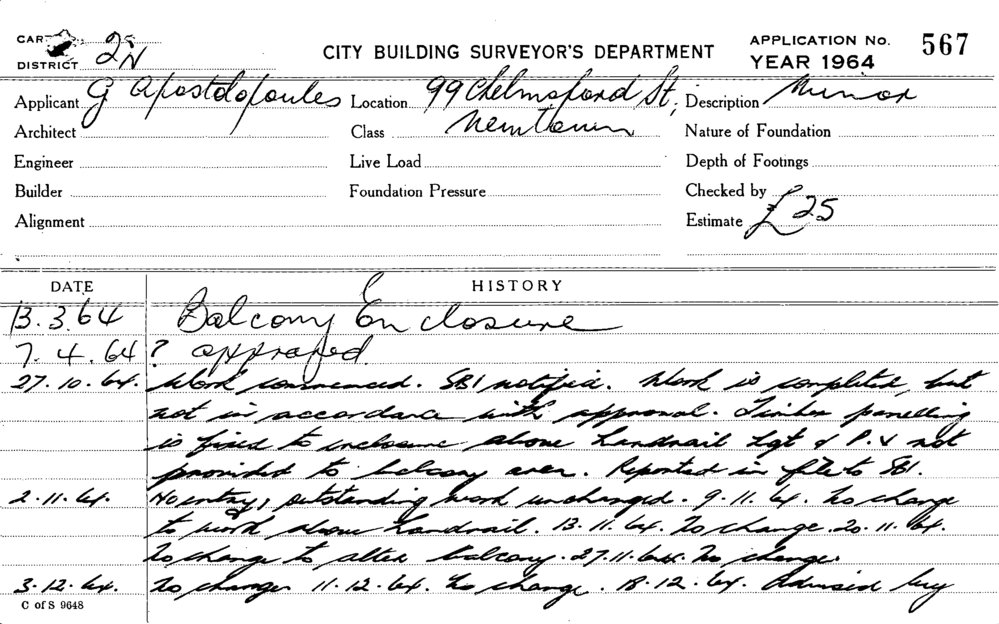 CAR
DISTRICT 2N
CITY BUILDING SURVEYOR'S DEPARTMENT
APPLICATION No. 567
YEAR 1964
Applicant G Apostolopoules Location 99 Chelmsford St, Description Minor
Architect Class Newtown Nature of Foundation
Engineer Live Load Depth of Footings
Builder Foundation Pressure Checked by
Alignment Estimate £25
DATE HISTORY
13.3.64 Balcony Enclosure
7.4.64 ? approved
27.10.64. Work commenced. SBI notified. Work is completed, but
not in accordance with approval. Timber panelling
is fixed to inclosure above handrail Lgt & P.V not
provided to balcony area. Reported in file to SBI.
2.11.64. No entry, outstanding work unchanged. 9.11.64. No change
to work above handrail. 13.11.64. No change. 20.11.64.
No change to alter balcony. 27.11.64. No change.
3.12.64. No change 11.12.64. No change. 18.12.64. Advised by
C of S 9648